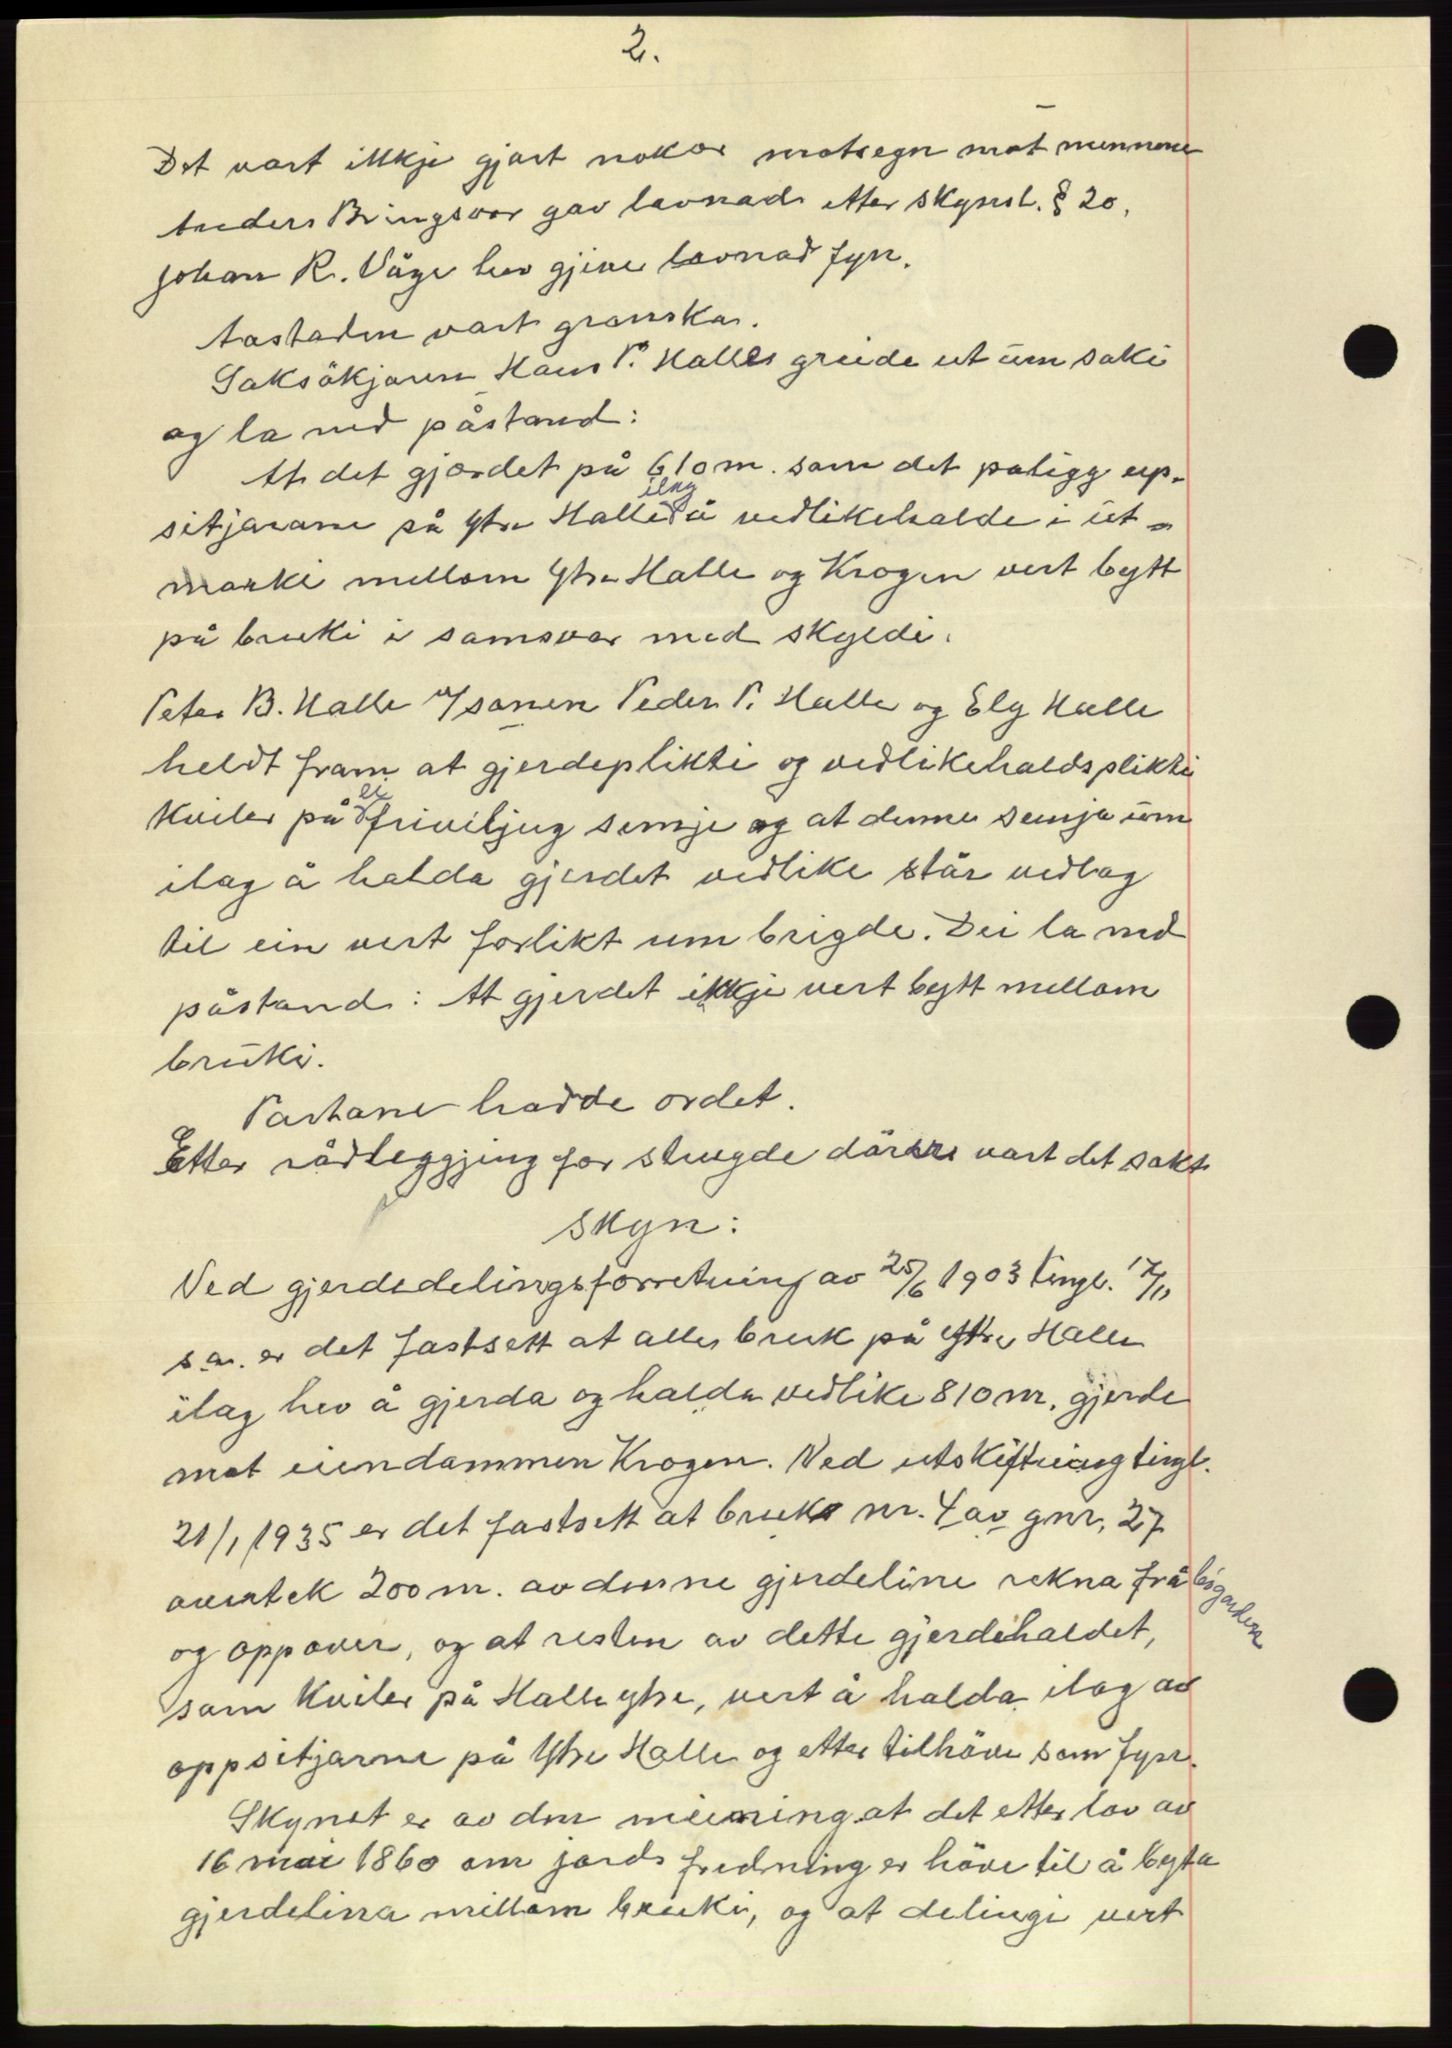 2.
Det vart ikkje gjort nokor motsegn mot mennene
Anders Bringsvor gav lovnad etter skynsl. § 20.
Johan R. Våge hev gjeve lovnad fyrr.
Aastaden vart granska.
Saksökjaren Hans P. Halle greide ut um saki
og la ned påstand:
At det gjerdet på 610 m. som det paligg up-
sitjarane på Ytre Halle ilag å vedlikehalde i ut-
marki mellom Ytre Halle og Krogen vert bytt
på bruki i samsvar med skyldi.
Peter B. Halle v/sonen Peder P. Halle og Ely Halle
heldt fram at gjerdeplikti og vedlikehaldsplikti
kviler på ei friviljug semje og at denne semja um
ilag å halda gjerdet vedlike står vedlag
til ein vert forlikt um brigde. Dei la ned
påstand: At gjerdet ikkje vert bytt mellom
bruki.
Partane hadde ordet.
Etter rådleggjing for stengde dörer vart det sakt
skyn:
Ved gjerdedelingsforretning av 25/6 1903 tingl. 17/11
s.a. er det fastsett at alle bruk på Ytre Halle
ilag hev å gjerda og halda vedlike 810 m. gjerde
mot eiendommen Krogen. Ved utskiftning tingl.
21/1 1935 er det fastsett at bruk nr. 4 av gnr. 27
overtek 200 m. av denne gjerdeline rekna frå bögarden
og oppover, og at resten av dette gjerdehaldet,
som kviler på Halle ytre, vert å halda ilag av
oppsitjarne på Ytre Halle og etter tilhöve som fyrr.
Skynet er av den meining at det etter lov av
16 mai 1860 om jords fredning er höve til å byta
gjerdelina millom bruki, og at delingi vert